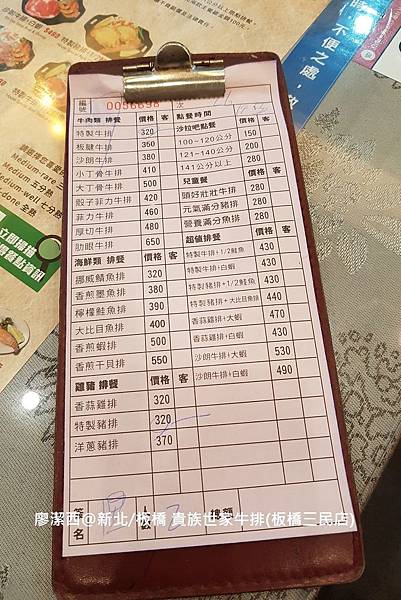 編號 0056698
牛肉類 排餐 價格 客
特製牛排 320
板腱牛排 350
沙朗牛排 380
小丁骨牛排 410
大丁骨牛排 500
骰子菲力牛排 420
菲力牛排 460
厚切牛排 480
肋眼牛排 650
海鮮類 排餐 價格 客
挪威鯖魚排 320
香煎墨魚排 380
檸檬鮭魚排 390
大比目魚排 400
香煎蝦排 500
香煎干貝排 550
雞豬 排餐 價格 客
香蒜雞排 320
特製豬排 320
洋蔥豬排 370
簽名
次 點餐時間
沙拉吧點餐 價格 客
100~120公分 150
121~140公分 200
141公分以上 280
兒童餐 價格 客
頭好壯壯牛排 280
元氣滿分豬排 280
營養滿分魚排 280
超值排餐 價格 客
特製牛排+1/2鮭魚 430
特製牛排+白蝦 430
特製豬排+1/2鮭魚 430
特製豬排+大比目魚排 440
香蒜雞排+大蝦 470
香蒜雞排+白蝦 430
沙朗牛排+大蝦 530
沙朗牛排+白蝦 490
總額
不便之處，
Medium-rare
Medium 五分熟
Medium-well 七分熟
done 全熟
立即掃描
廖潔西@新北/板橋 貴族世家牛排(板橋三民店)